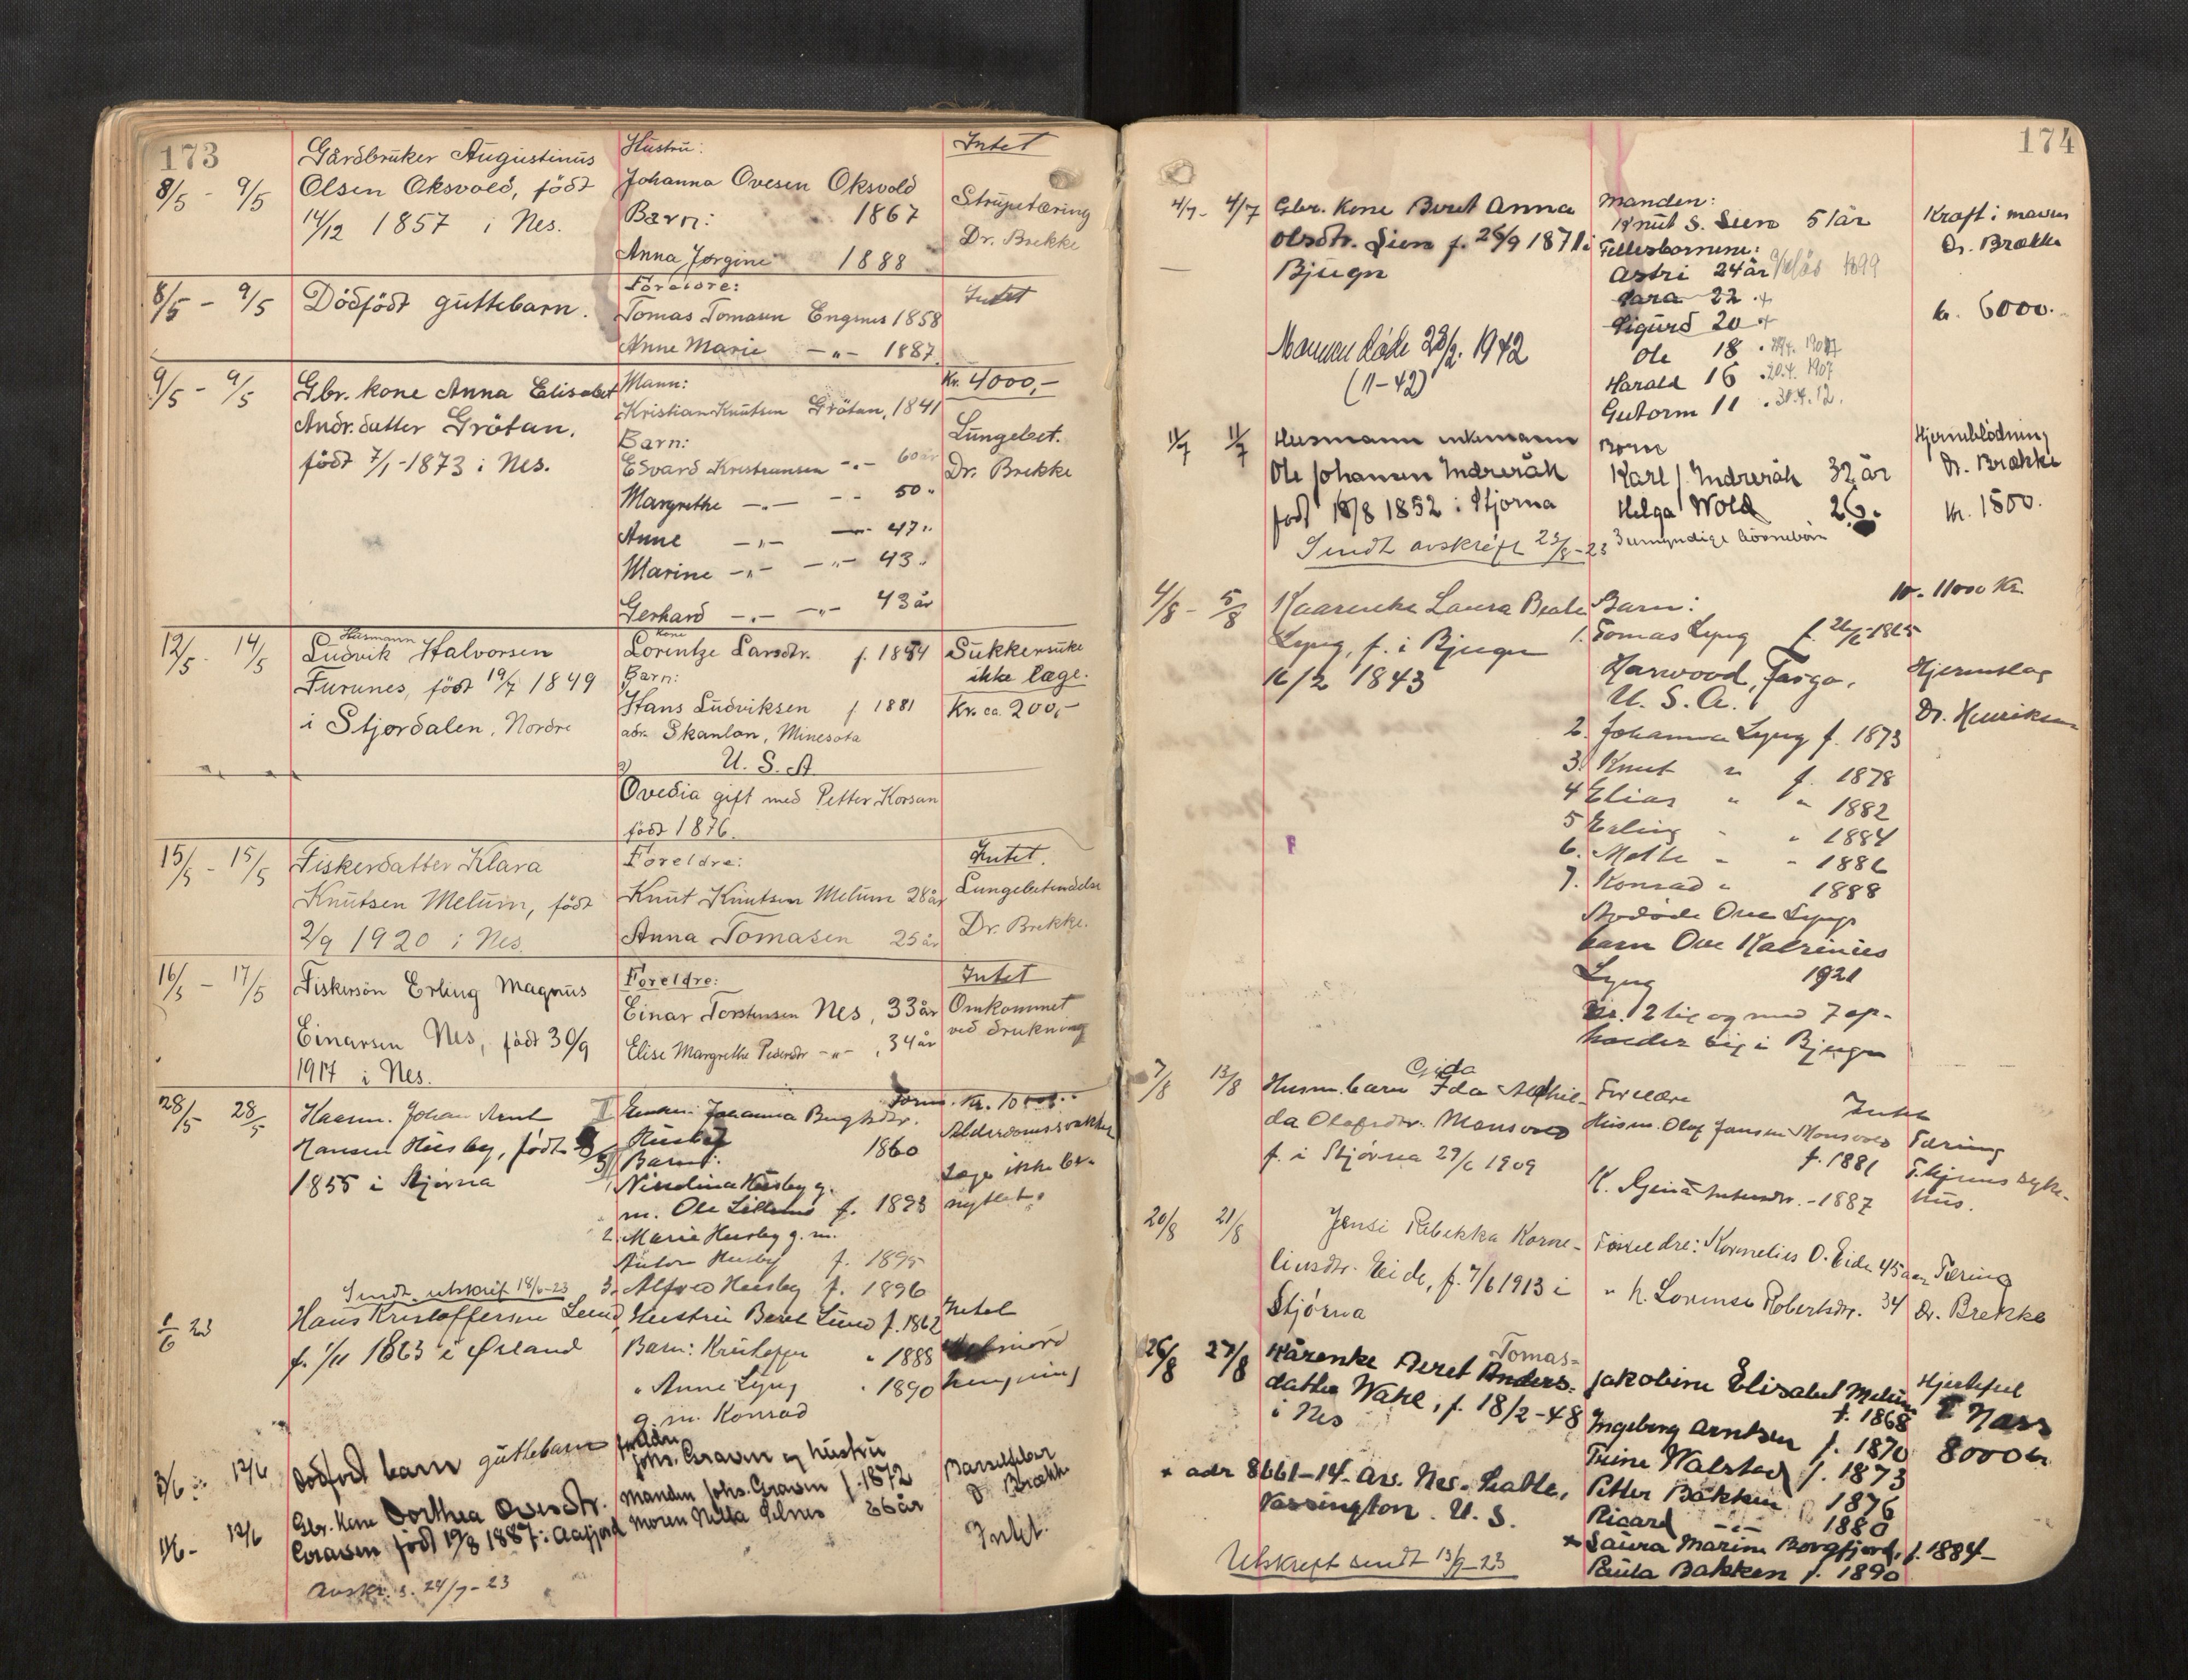 173
8/5 - 9/5 Gårdbruker Augustinus Hustru: Intet
Olsen Oksvold, född Johanna Ovesen Oksvold
14/12 1857 i Nes. Barn: 1867 Strupetæring
Anna Jørgine 1888 Dr. Brekke
8/5 - 9/5 Dödfödt guttebarn. Foreldre: Intet
Tomas Tomasen Engsnes 1858
Anne Marie -„- 1887.
9/5 - 9/5 Gbr. kone Anna Elisabet Mann: Kr. 4000,-
Andr. datter Grötan. Kristian Knutsen Grötan, 1841
född 7/1-1873 i Nes. Barn: Lungebet.
Edvard Kristiansen -„- 60 år Dr. Brekke
Margrethe -„- -„- 50 „
Anne -„- -„- 47 „
Marine -„- -„- 43 „
Gerhard -„- -„- 43 år
12/5 - 14/5 Husmann kone
Ludvik Halvorsen Lorentze Larsdtr. f. 1854 Sukkersuke
Furunes, född 19/7 1849 Barn: ikke læge.
i Stjordalen, Nordre Hans Ludviksen f 1881 Kr. ca. 200,-
adr. Skanlan, Minesota
U. S. A.
Ovedia gift med Petter Korsan
född 1876.
15/5 - 15/5 Fiskerdatter Klara Foreldre: Intet.
Knutsen Melum, född Knut Knutsen Melum 28 år Lungebetendelse
2/9 1920 i Nes. Anna Tomasen 25 år Dr. Brekke.
16/5 - 17/5 Fiskersön Erling Magnus Foreldre: Intet
Einarsen Nes, född 30/9 Einar Torstensen Nes, 33 år Omkommet
1917 i Nes. Elise Margrethe Pedersdtr -„-, 34 år ved drukning
28/5 28/5 Johan Arnt Johanna
Hansen Husby, född Husby 1860 Alderdomssvakhet
1855 i Stjørna Barn: Læge ikke be-
Husby g. nyttet.
m. Ole f. 1893
2. Marie Husby g. m.
Husby f. 1895
Sendt utskrift 18/6-23 3. Alfred Husby f. 1896
6/6 23 Hans Kristoffersen Lund, Hustru Beret Lund f. 1862 Intet
f. 1/11 1863 i Ørland Barn: Kristoffer „ 1888 Selvmord
„ Anne Lyng „ 1890 hengning
g. m. Konrad
3/6 12/6 Dødfødt barn guttebarn Johs. Graven og hustru
Gbr. kone Dorthea Ovesdtr. Manden Johs. Graven f. 1872 Barselfeber
12/6 Graven född 19/8 1887 i Aafjord Moren 86 år Dr. Brækk
Intet.
Avskr. s. 24/7-23
174
4/7 - 4/7 Gbr. Kone Beret Anna Manden: Kraft i maven
Olsdtr. Sien f. 26/9 1871 i Knut S. Sien 51 år Dr. Brække
Bjugn Fellesbarnene:
Astri 24 år 1899
Sara 22 +
Sigurd 20 + kr. 6000.
Mannen døde 23/2. 1942 Ole 18
(11-42) Harald 16 . 20.4. 1907
Gutorm 11 . 30.4. 12.
11/7 11/7 Husmann enkemann Born Hjerneblödning
Ole Johansen Indreråk Karl J. Indreråk 32 år Dr. Brække
född 16/8 1852 i Stjorna Helga Wold 26. kr. 1500.
Sendt avskrift 23/8-23 3 umyndige
4/8 - 5/8 Kaarenka Laura Beate Barn: 10-11000 Kr
Lyng, f. i Bjugn 1. Tomas Lyng f. 1865
16/2 1843 Harwood, Fargo, Hjerneslag
U. S. A. Dr. Henriksen
2. Johanna Lyng f. 1873
3. Knut „ f. 1878
4 Elias „ „ 1882
5 Erling „ „ 1884
6. Mette „ „ 1886
7. Konrad „ 1888
Avdøde Ove Lyngs
barn Ove Katrinius
Lyng 1921
Nr. 2 til og med 7 op-
holder sig i Bjugn
7/8 13/8 Gida
Husm. barn Ida Mathil- Foreldre Intet
da Olafsdtr. Monsvold Husm. Olaf Jansen Monsvold Tæring
f. i Stjørna 29/6 1909 f. 1881 T.hjems syke-
K. -1887 hus.
20/8 21/8 Jensi Rebekka Korne- Foreldre: Kornelius O. Eide 45 aar Tæring
liusdtr. Eide, f. 7/6 1913 i „ h. Lorense Robertsdtr. 34 Dr. Brekke
Stjørna
26/8 27/8 Tomas-
Kårenke Beret Anders- Jakobine Elisabet Melum Hjertefeil
datter Wake, f. 18/2-48 f. 1868
i Nes Ingeborg Arntsen f. 1870 8000 kr.
Trine Walstad f. 1873
x adr 8661-14- Av. Nes. Seatle, Petter Bakken 1876
Vassington. U. S. Ricard -„- 1880
x Laura Marine Borgfjord, f. 1884-
Utskrift sendt 13/9-23 Paula Bakken f. 1890